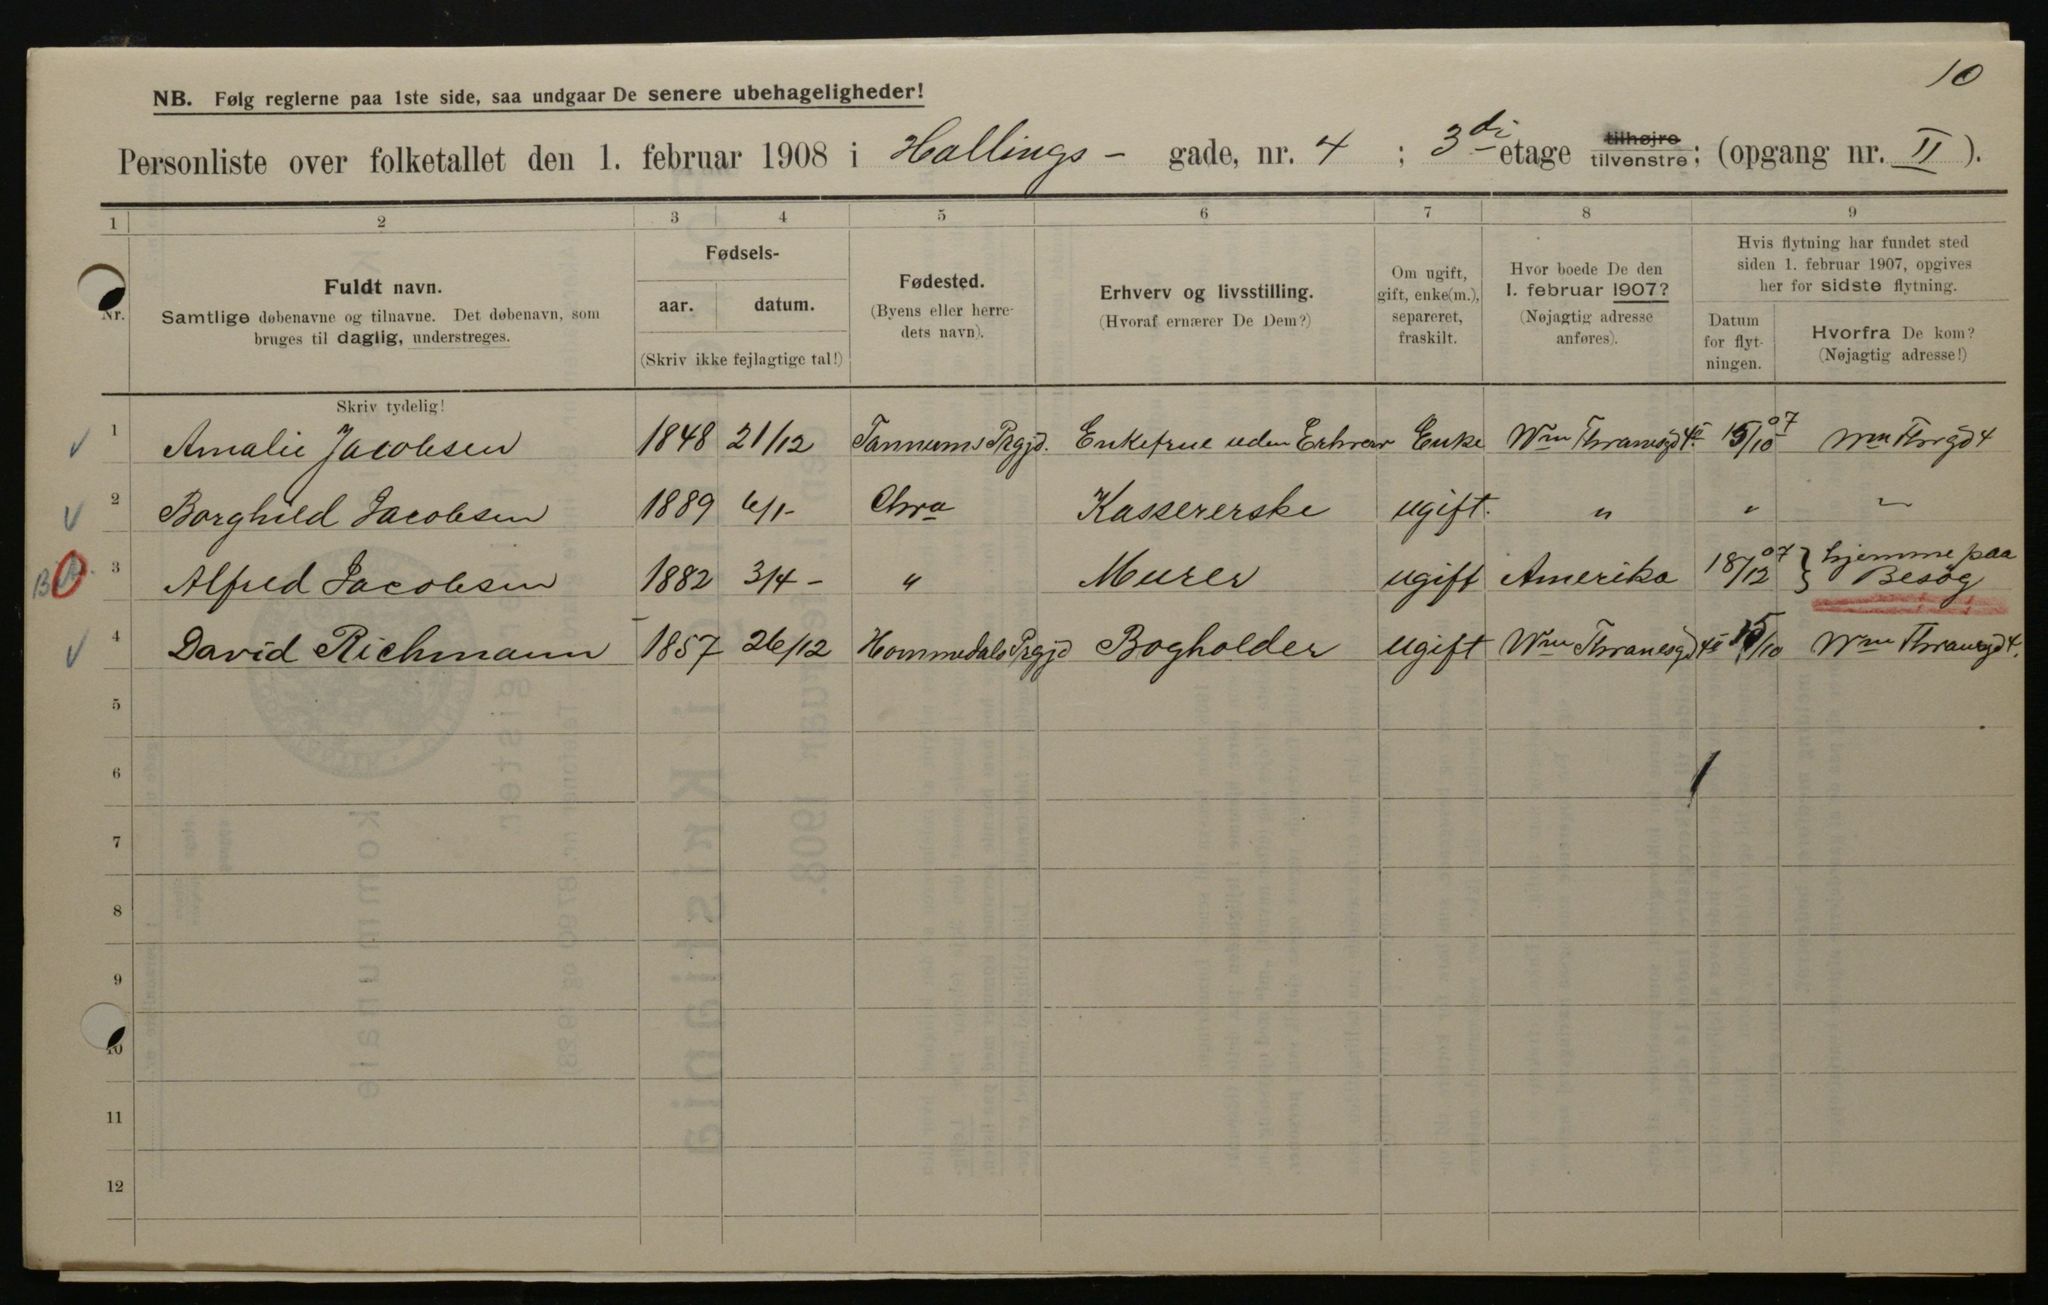 10
NB. Følg reglerne paa 1ste side, saa undgaar De senere ubehageligheder!
Personliste over folketallet den 1. februar 1908 i Hallings - gade, nr. 4 ; 3di etage tilhøjre tilvenstre; (opgang nr. II ).
1 2 3 4 5 6 7 8 9
Nr.
Fuldt navn.
Samtlige døbenavne og tilnavne. Det døbenavn, som
bruges til daglig, understreges.
Skriv tydelig!
Fødsels-
aar. datum.
(Skriv ikke fejlagtige tal!)
Fødested.
(Byens eller herre-
dets navn).
Erhverv og livsstilling.
(Hvoraf ernærer De Dem?)
Om ugift,
gift, enke(m.),
separeret,
fraskilt.
Hvor boede De den
1. februar 1907?
(Nøjagtig adresse
anføres).
Hvis flytning har fundet sted
siden 1. februar 1907, opgives
her for sidste flytning.
Datum
for flyt-
ningen.
Hvorfra De kom?
(Nøjagtig adresse!)
1 Amalie Jacobsen 1848 21/12 Tannums Prgjd. Enkefrue uden Erhverv Enke Wm Thranesgd 4 II 15/10 07 Wm Thrgd 4
2 Borghild Jacobsen 1889 6/1- Chra Kassererske ugift. " " "
3 Alfred Jacobsen 1882 3/4 - " Murer ugift Amerika 18/12 07 } hjemme paa
Besøg
4 David Richmann 1857 26/12 Hommedals Prgjd Bogholder ugift Wm Thranesgd 4 II 15/10 Wm Thranesgd 4.
5
6
7
8
9
10
11
12